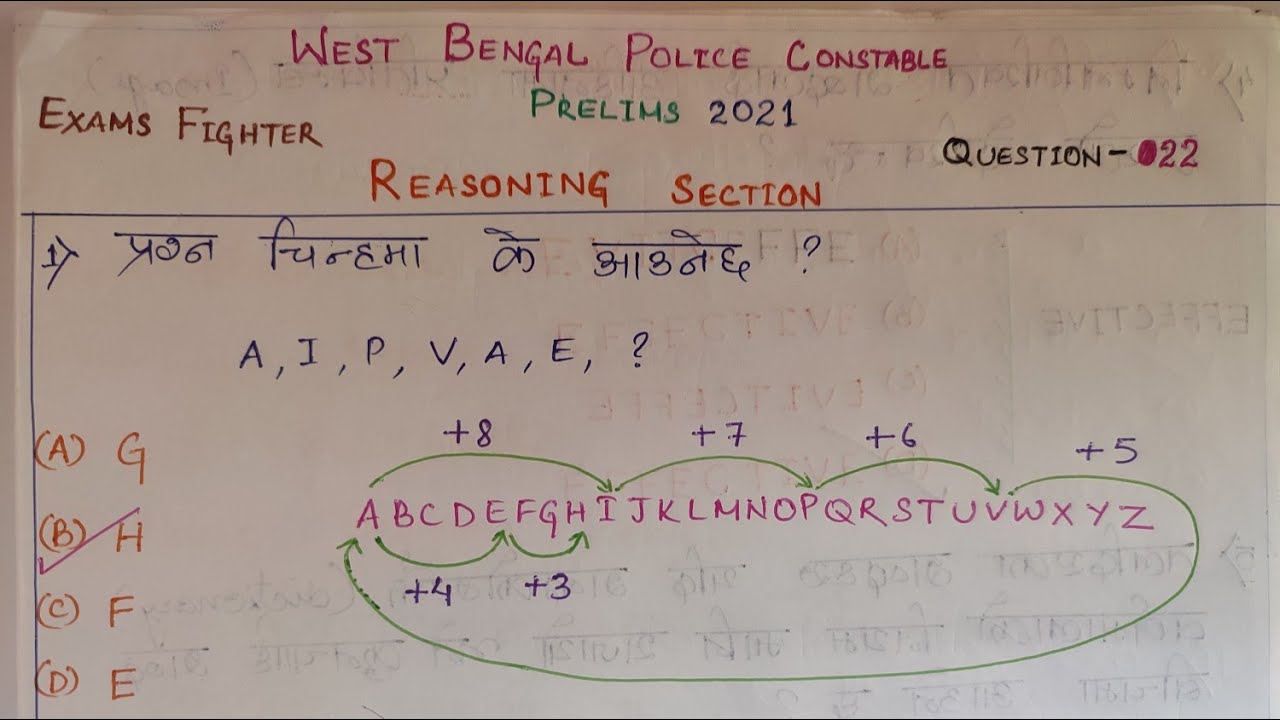 WEST BENGAL POLICE CONSTABLE
PRELIMS 2021
EXAMS FIGHTER
QUESTION-022
REASONING SECTION
1) प्रश्न चिन्हमा के आउनेछ ?
A, I, P, V, A, E, ?
(A) G
(B) H
(C) F
(D) E
+8 +7 +6 +5
A B C D E F G H I J K L M N O P Q R S T U V W X Y Z
+4 +3